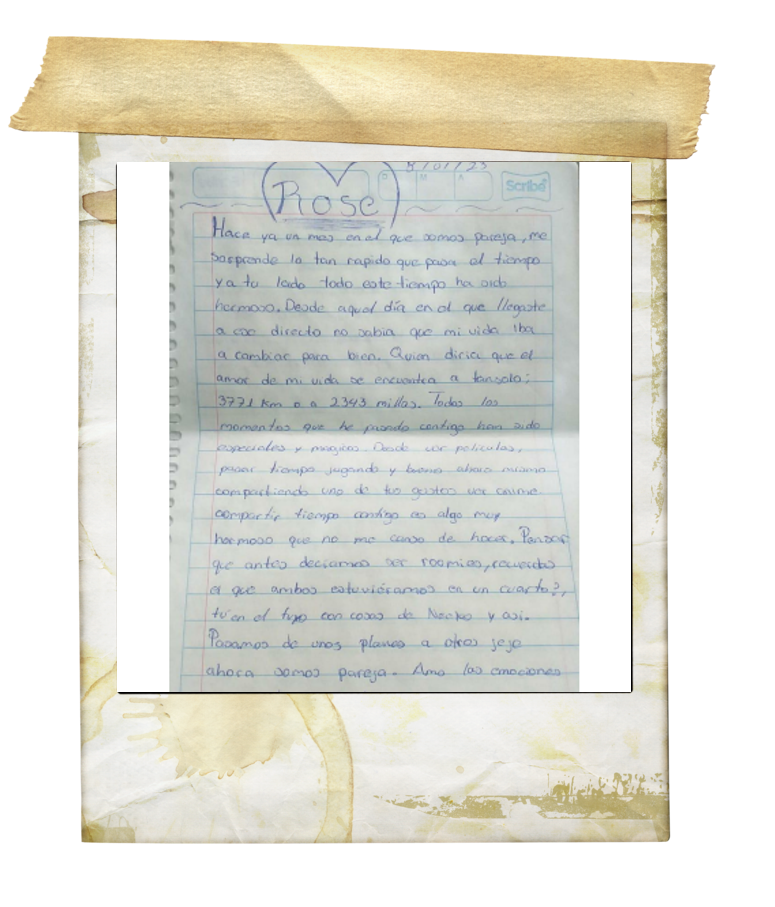 8/01/23
D M A
Scribe
Rose
Hace ya un mes en el que somos pareja, me
sorprende lo tan rapido que pasa el tiempo
y a tu lado todo este tiempo ha sido
hermoso. Desde aquel día en el que llegaste
a ese directo no sabia que mi vida iba
a cambiar para bien. Quien diria que el
amor de mi vida se encuentra a tansolo;
3771 Km o a 2343 millas. Todos los
momentos que he pasado contigo han sido
especiales y magicos. Desde ver peliculas,
pasar tiempo jugando y bueno ahora mismo
compartiendo uno de tus gustos ver anime
compartir tiempo contigo es algo muy
hermoso que no me canso de hacer. Pensar
que antes deciamos ser roomies, recuerdas
el que ambos estuviéramos en un cuarto?,
tú en el tuyo con cosas de Nekos y asi.
Pasamos de unos planes a otros jeje
ahora somos pareja. Amo las emociones